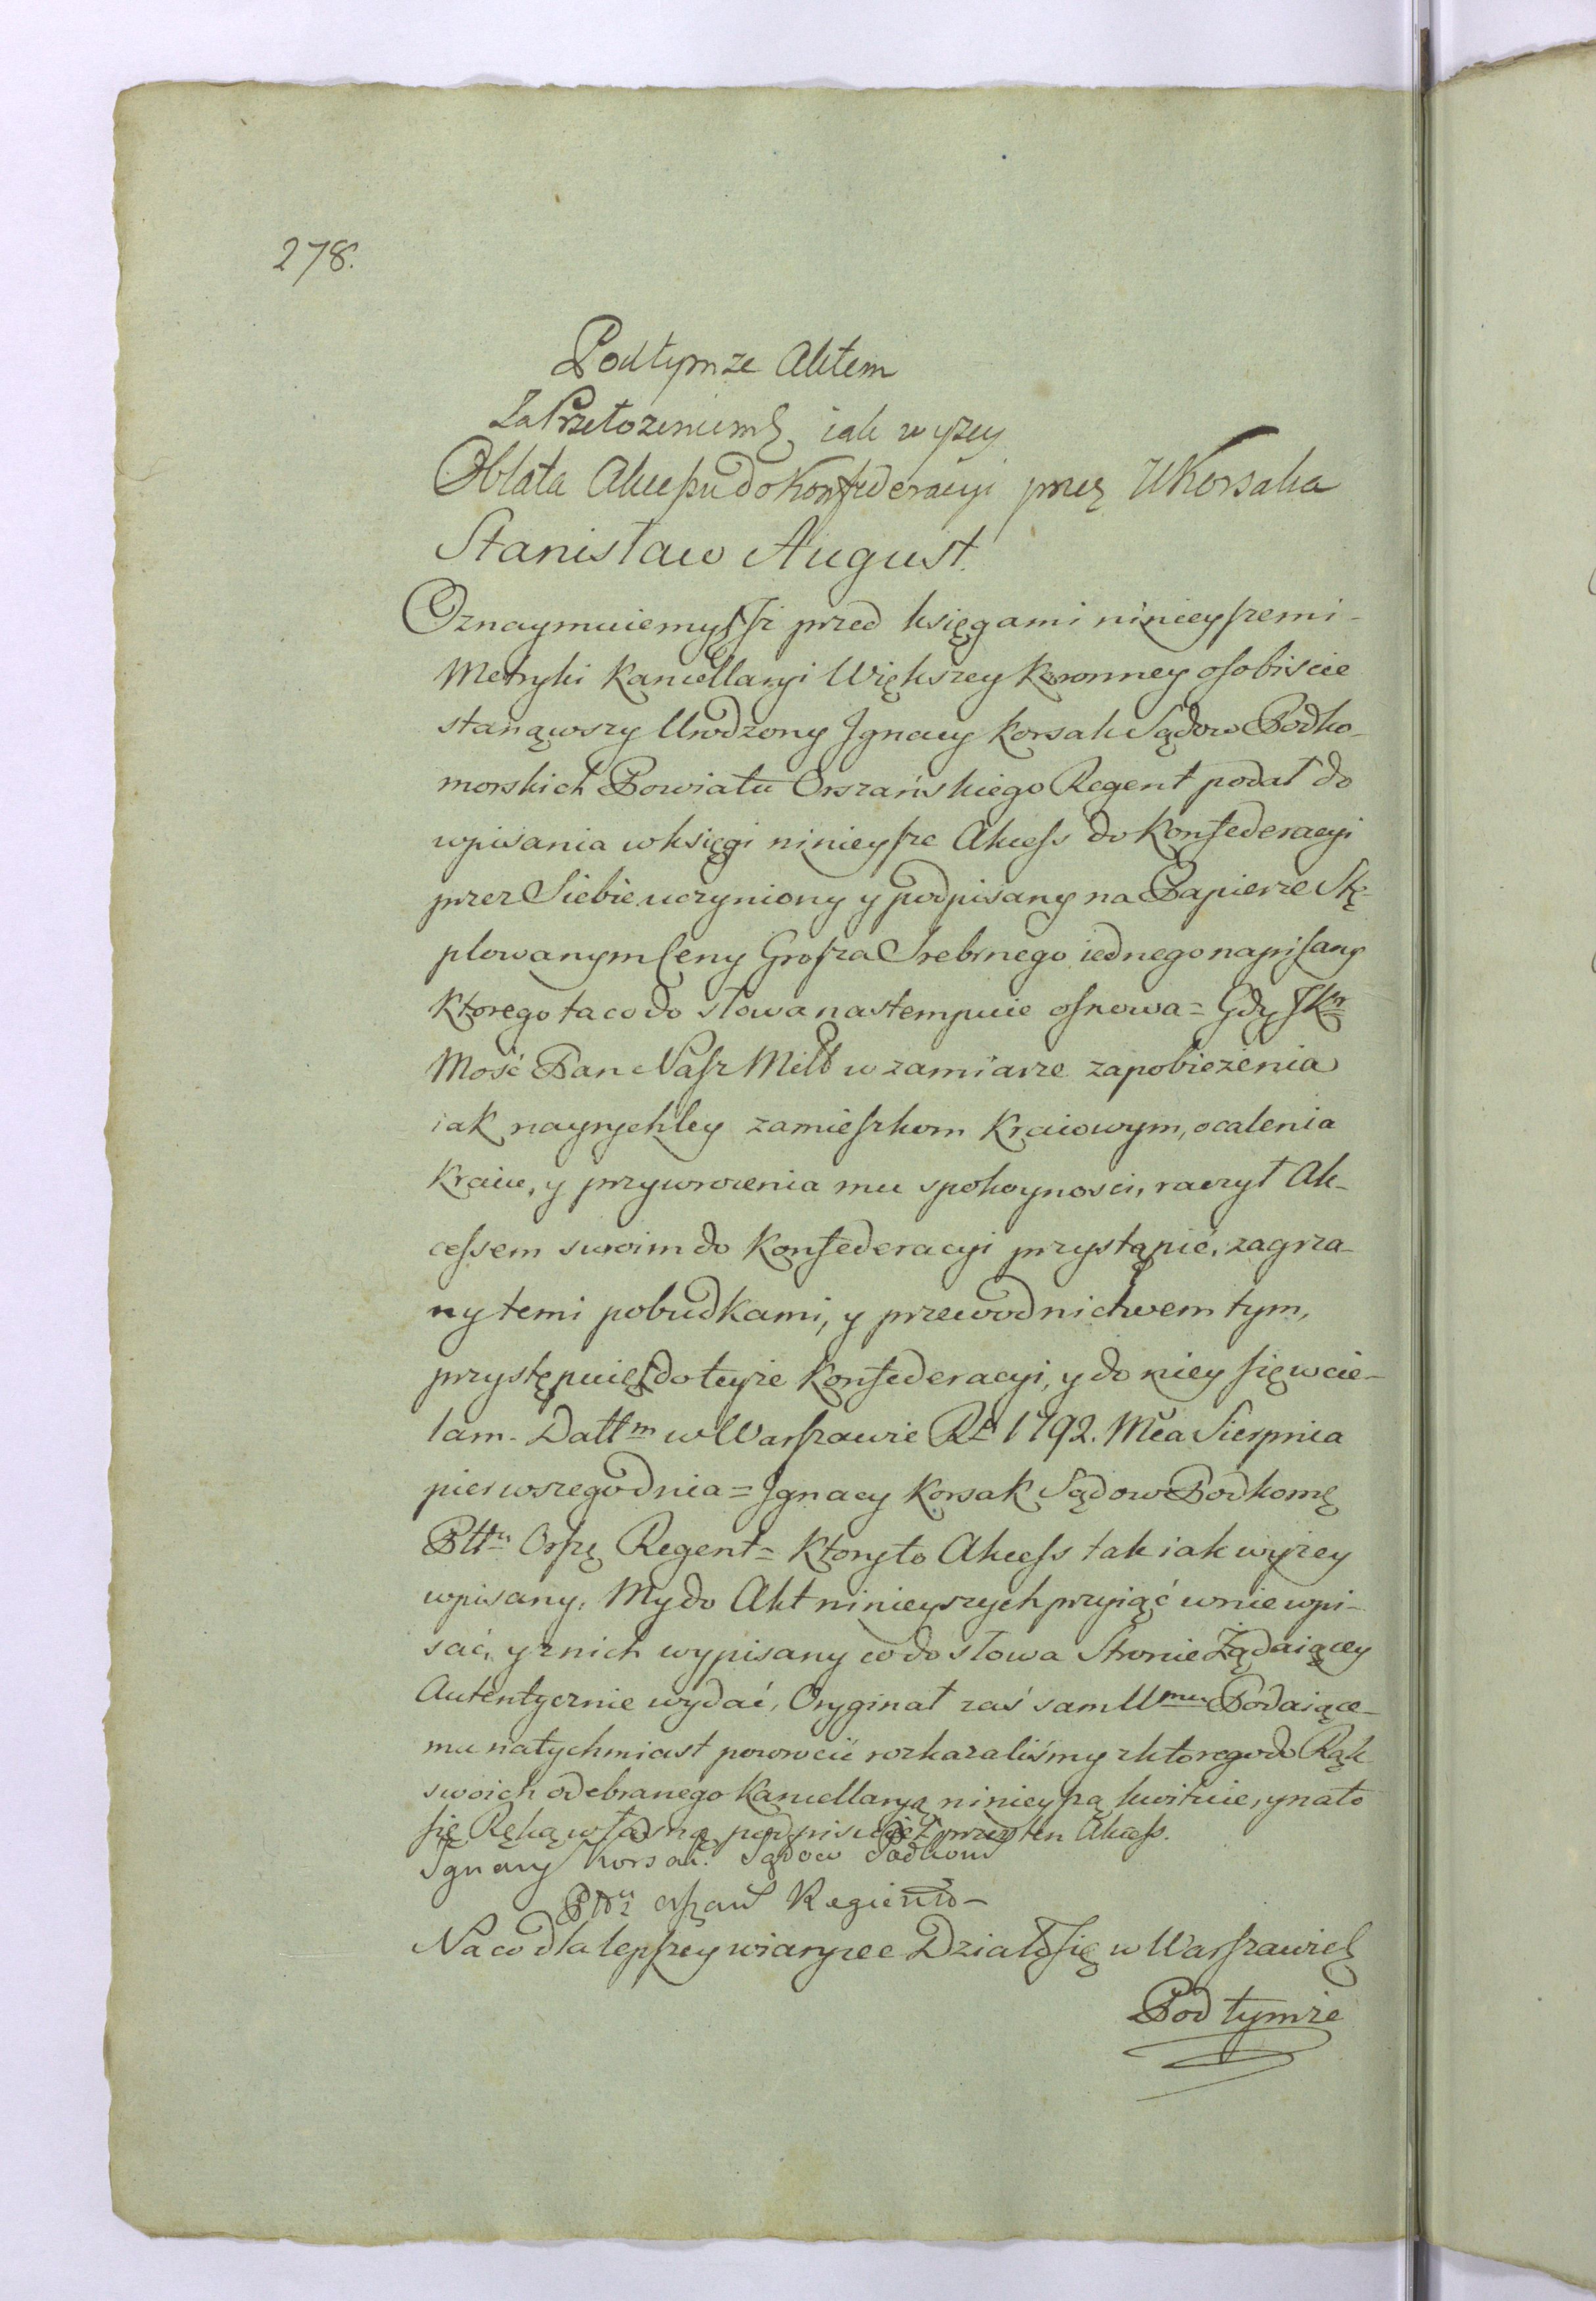 278.
Podtymze Aktem
Za Przełozeniem iak wyzey
Oblata Akcessu do Konfederacyi przez U Korsaka
Stanisław August.
Oznaymuiemy Jż przed księgami ninieyszemi
Metryki Kancellaryi Większey Koronney osobiscie
stanąwszy Urodzony Jgnacy Korsak Sądow Podko-
morskich Powiatu Orszańskiego Regent podał do
wpisania w księgi ninieysze Akcess do Konfederacyi
przez Siebie uczyniony y podpisany na Papierze Stę-
plowanym Ceny Grosza Srebrnego iednego napisany
Ktorego ta co do słowa nastempuie osnowa = Gdy JKr
Mość Pan Nasz Miłł w zamiarze zapobieżenia
iak nayrychley zamieszkom Kraiowym, ocalenia
Kraiu, y przywrocenia mu spokoynosci, raczył Ak-
cessem swoim do Konfederacyi przystąpić, zagrza-
ny temi pobudkami, y przewodnictwem tym,
przystępuię do teyże Konfederacyi, y do niey się wcie-
lam. Datt m w Warszawie Rku 1792. Mca Sierpnia
pierwszego dnia = Jgnacy Korsak Sądow Podkom
Pttu Orsz Regent = Ktory to Akcess tak iak wyżey
wpisany, My do Akt ninieyszych przyiąć w nie wpi-
sać, y z nich wypisany co do słowa Stronie Żądaiącey
Autentycznie wydać, Oryginał zaś sam U mu Podaiące-
mu natychmiast powrocić rozkazaliśmy z ktorego do Rąk
swoich odebranego Kancellaryą ninieyszą kwituie, y na to
się Ręką własną podpisuie przy ten Akcess.
Jgnacy Korsak Sądow Podkom
Pttu Orszań Regient
Na co dla lepszey wiary zec Działo się w Warszawie
Pod tymże